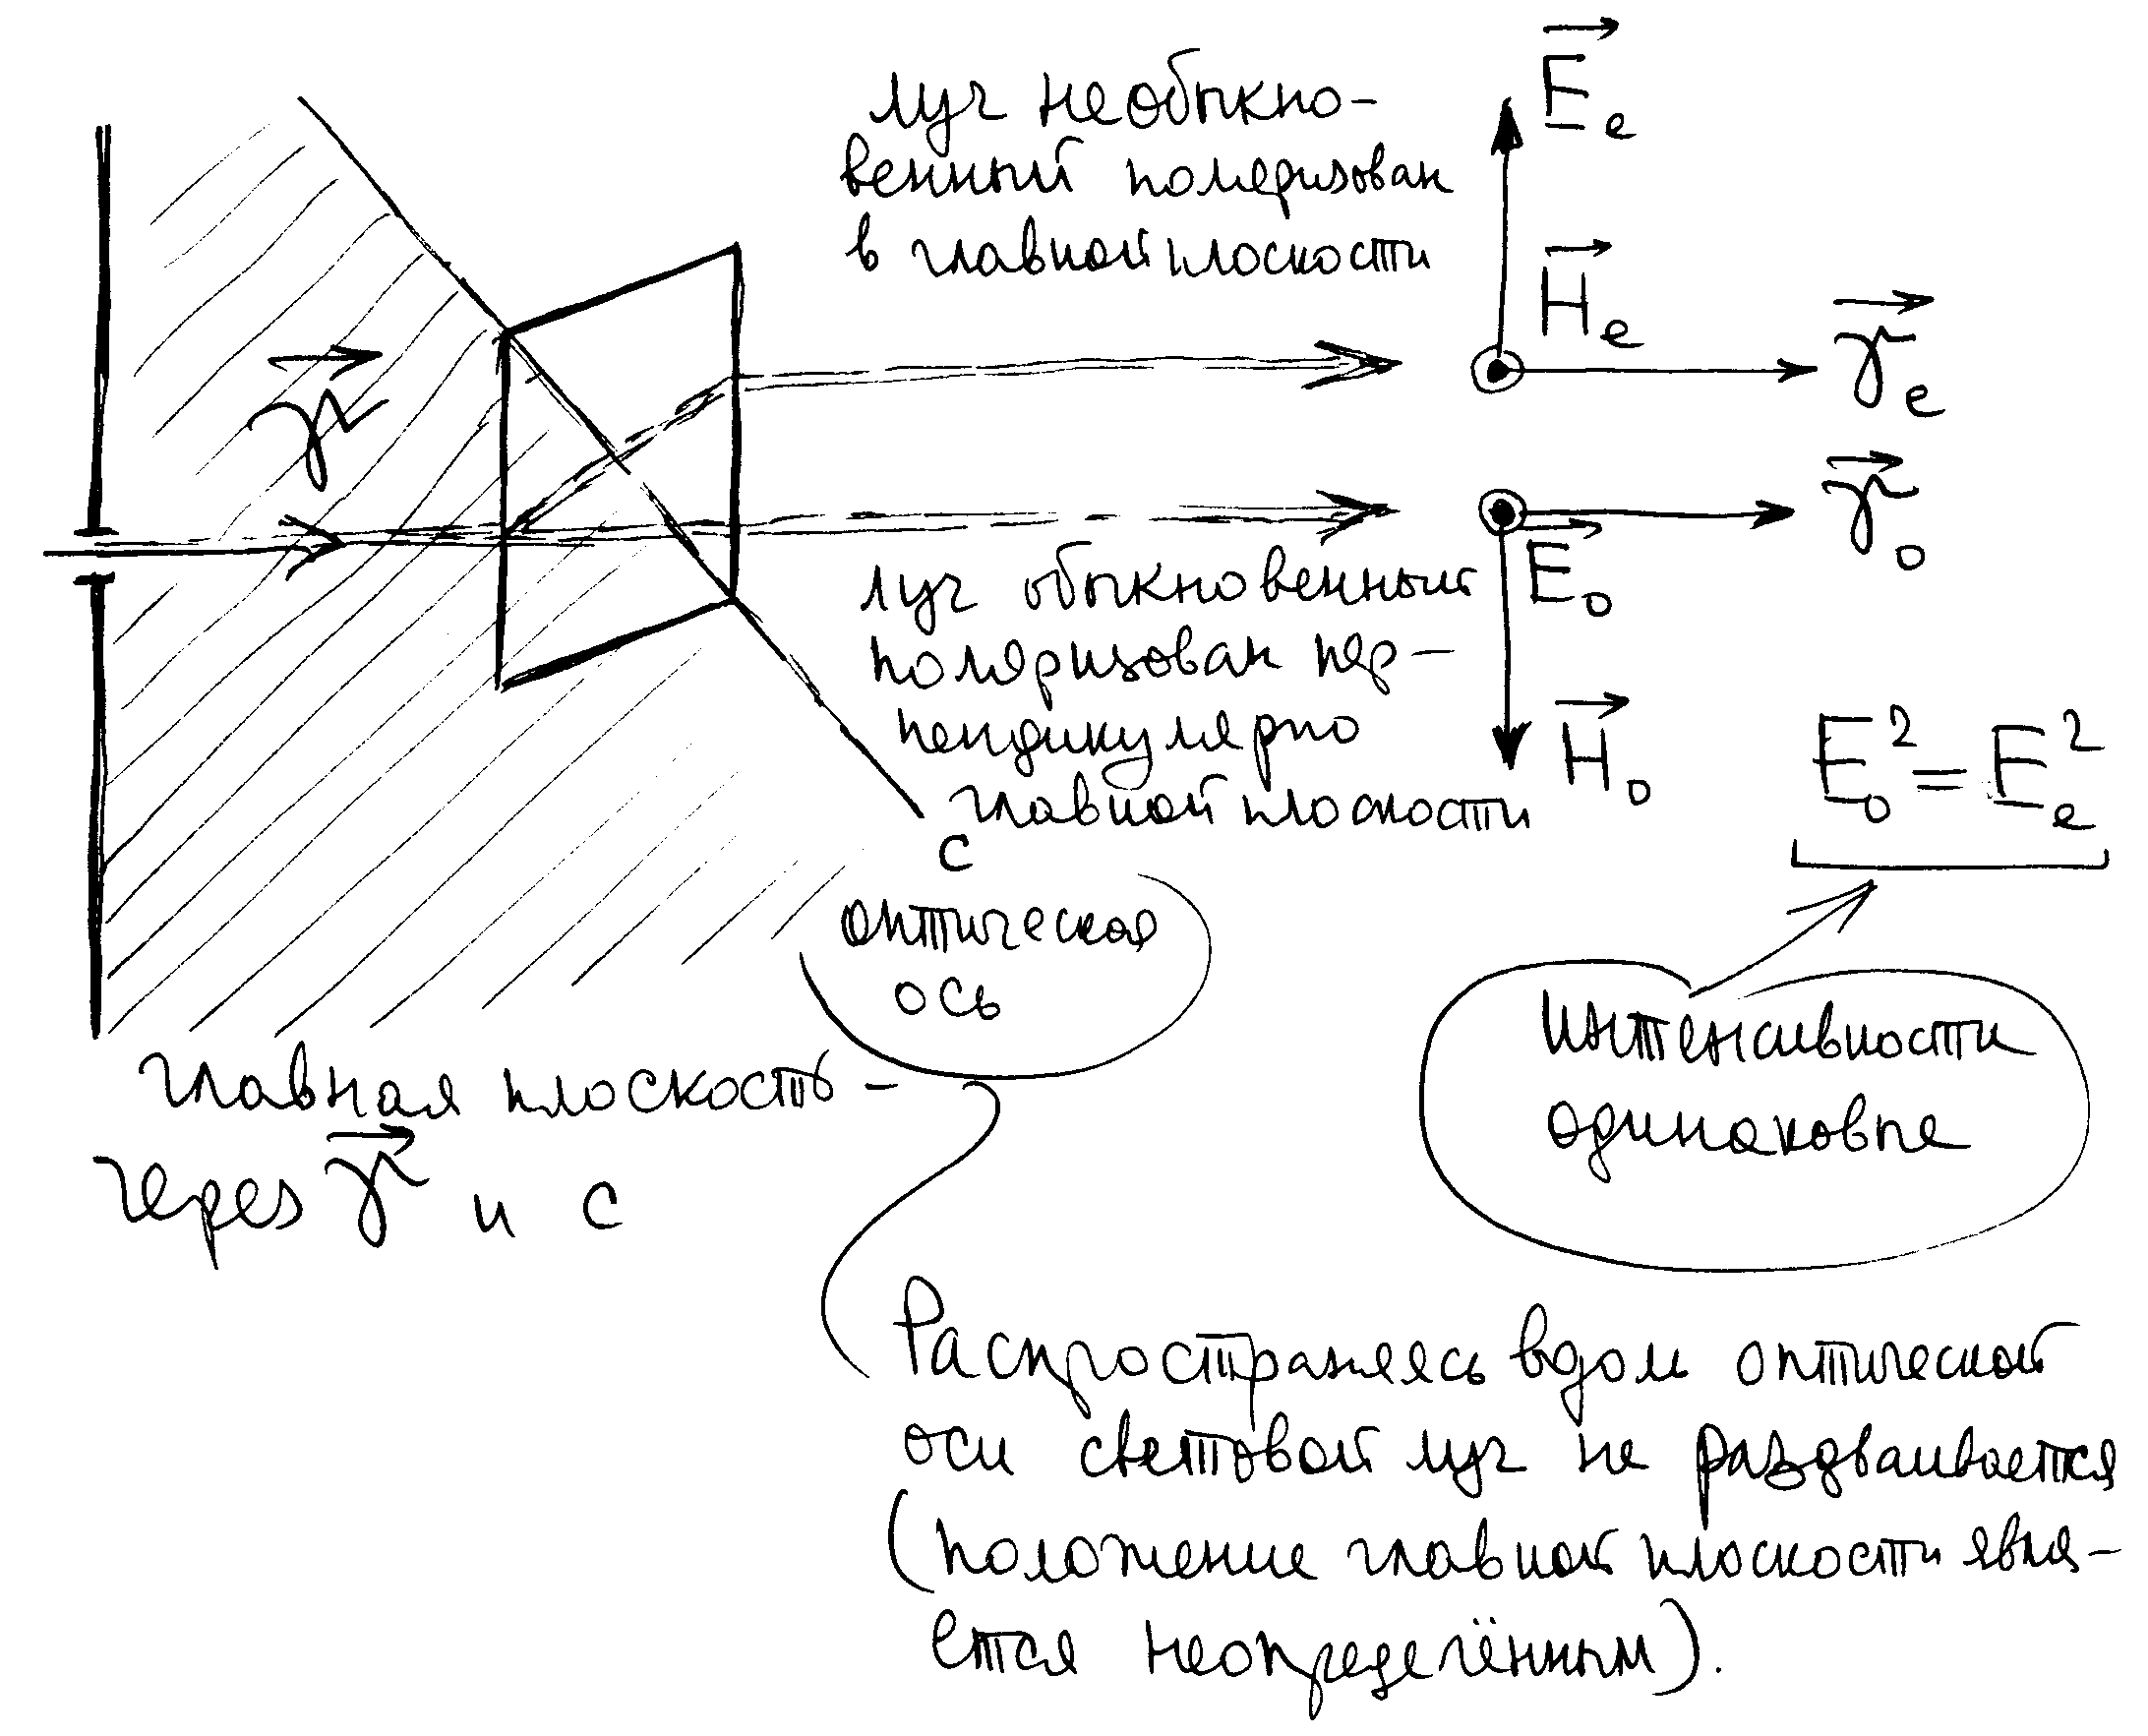 луч необыкно-
венный поляризован
в главной плоскости
E⃗e
H⃗e
γ⃗e
γ⃗
γ⃗o
E⃗o
H⃗o
луч обыкновенный
поляризован пер-
пендикулярно
главной плоскости
Eo² = Ee²
c
оптическая
ось
Интенсивности
одинаковые
главная плоскость -
через γ⃗ и c
Распространяясь вдоль оптической
оси световой луч не раздваивается
(положение главной плоскости явля-
ется неопределённым).